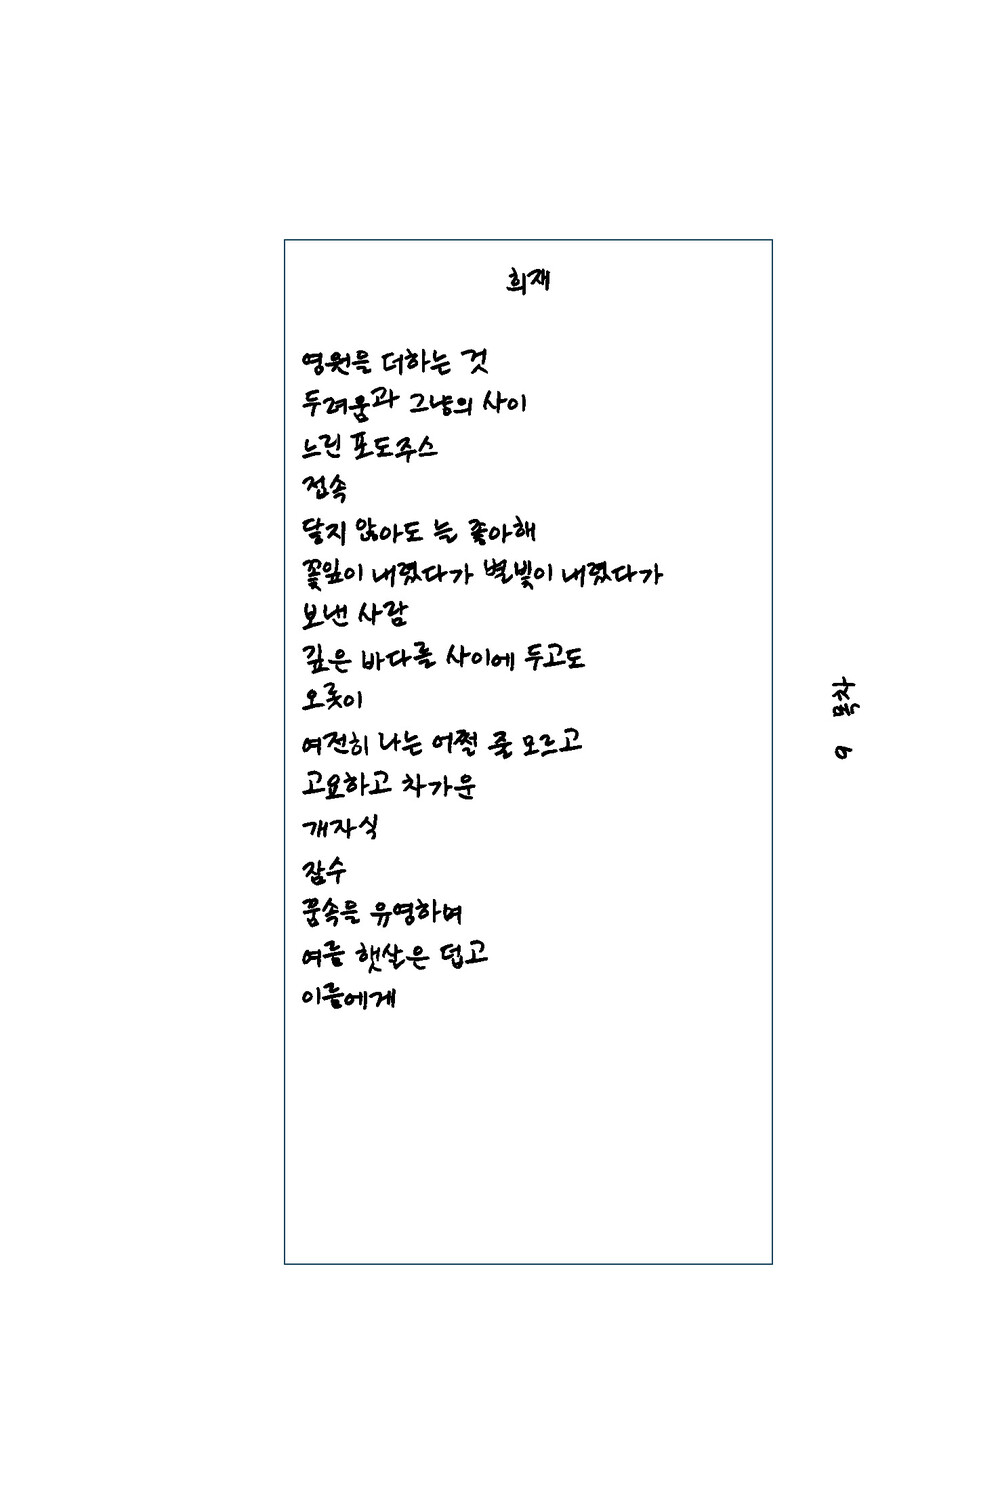 희재
영원을 더하는 것
두려움과 그냥의 사이
느린 포도주스
접속
닿지 않아도 늘 좋아해
꽃잎이 내렸다가 별빛이 내렸다가
보낸 사람
깊은 바다를 사이에 두고도
오롯이
여전히 나는 어쩔 줄 모르고
고요하고 차가운
개자식
잠수
꿈속을 유영하며
여름 햇살은 덥고
이름에게
9 목차